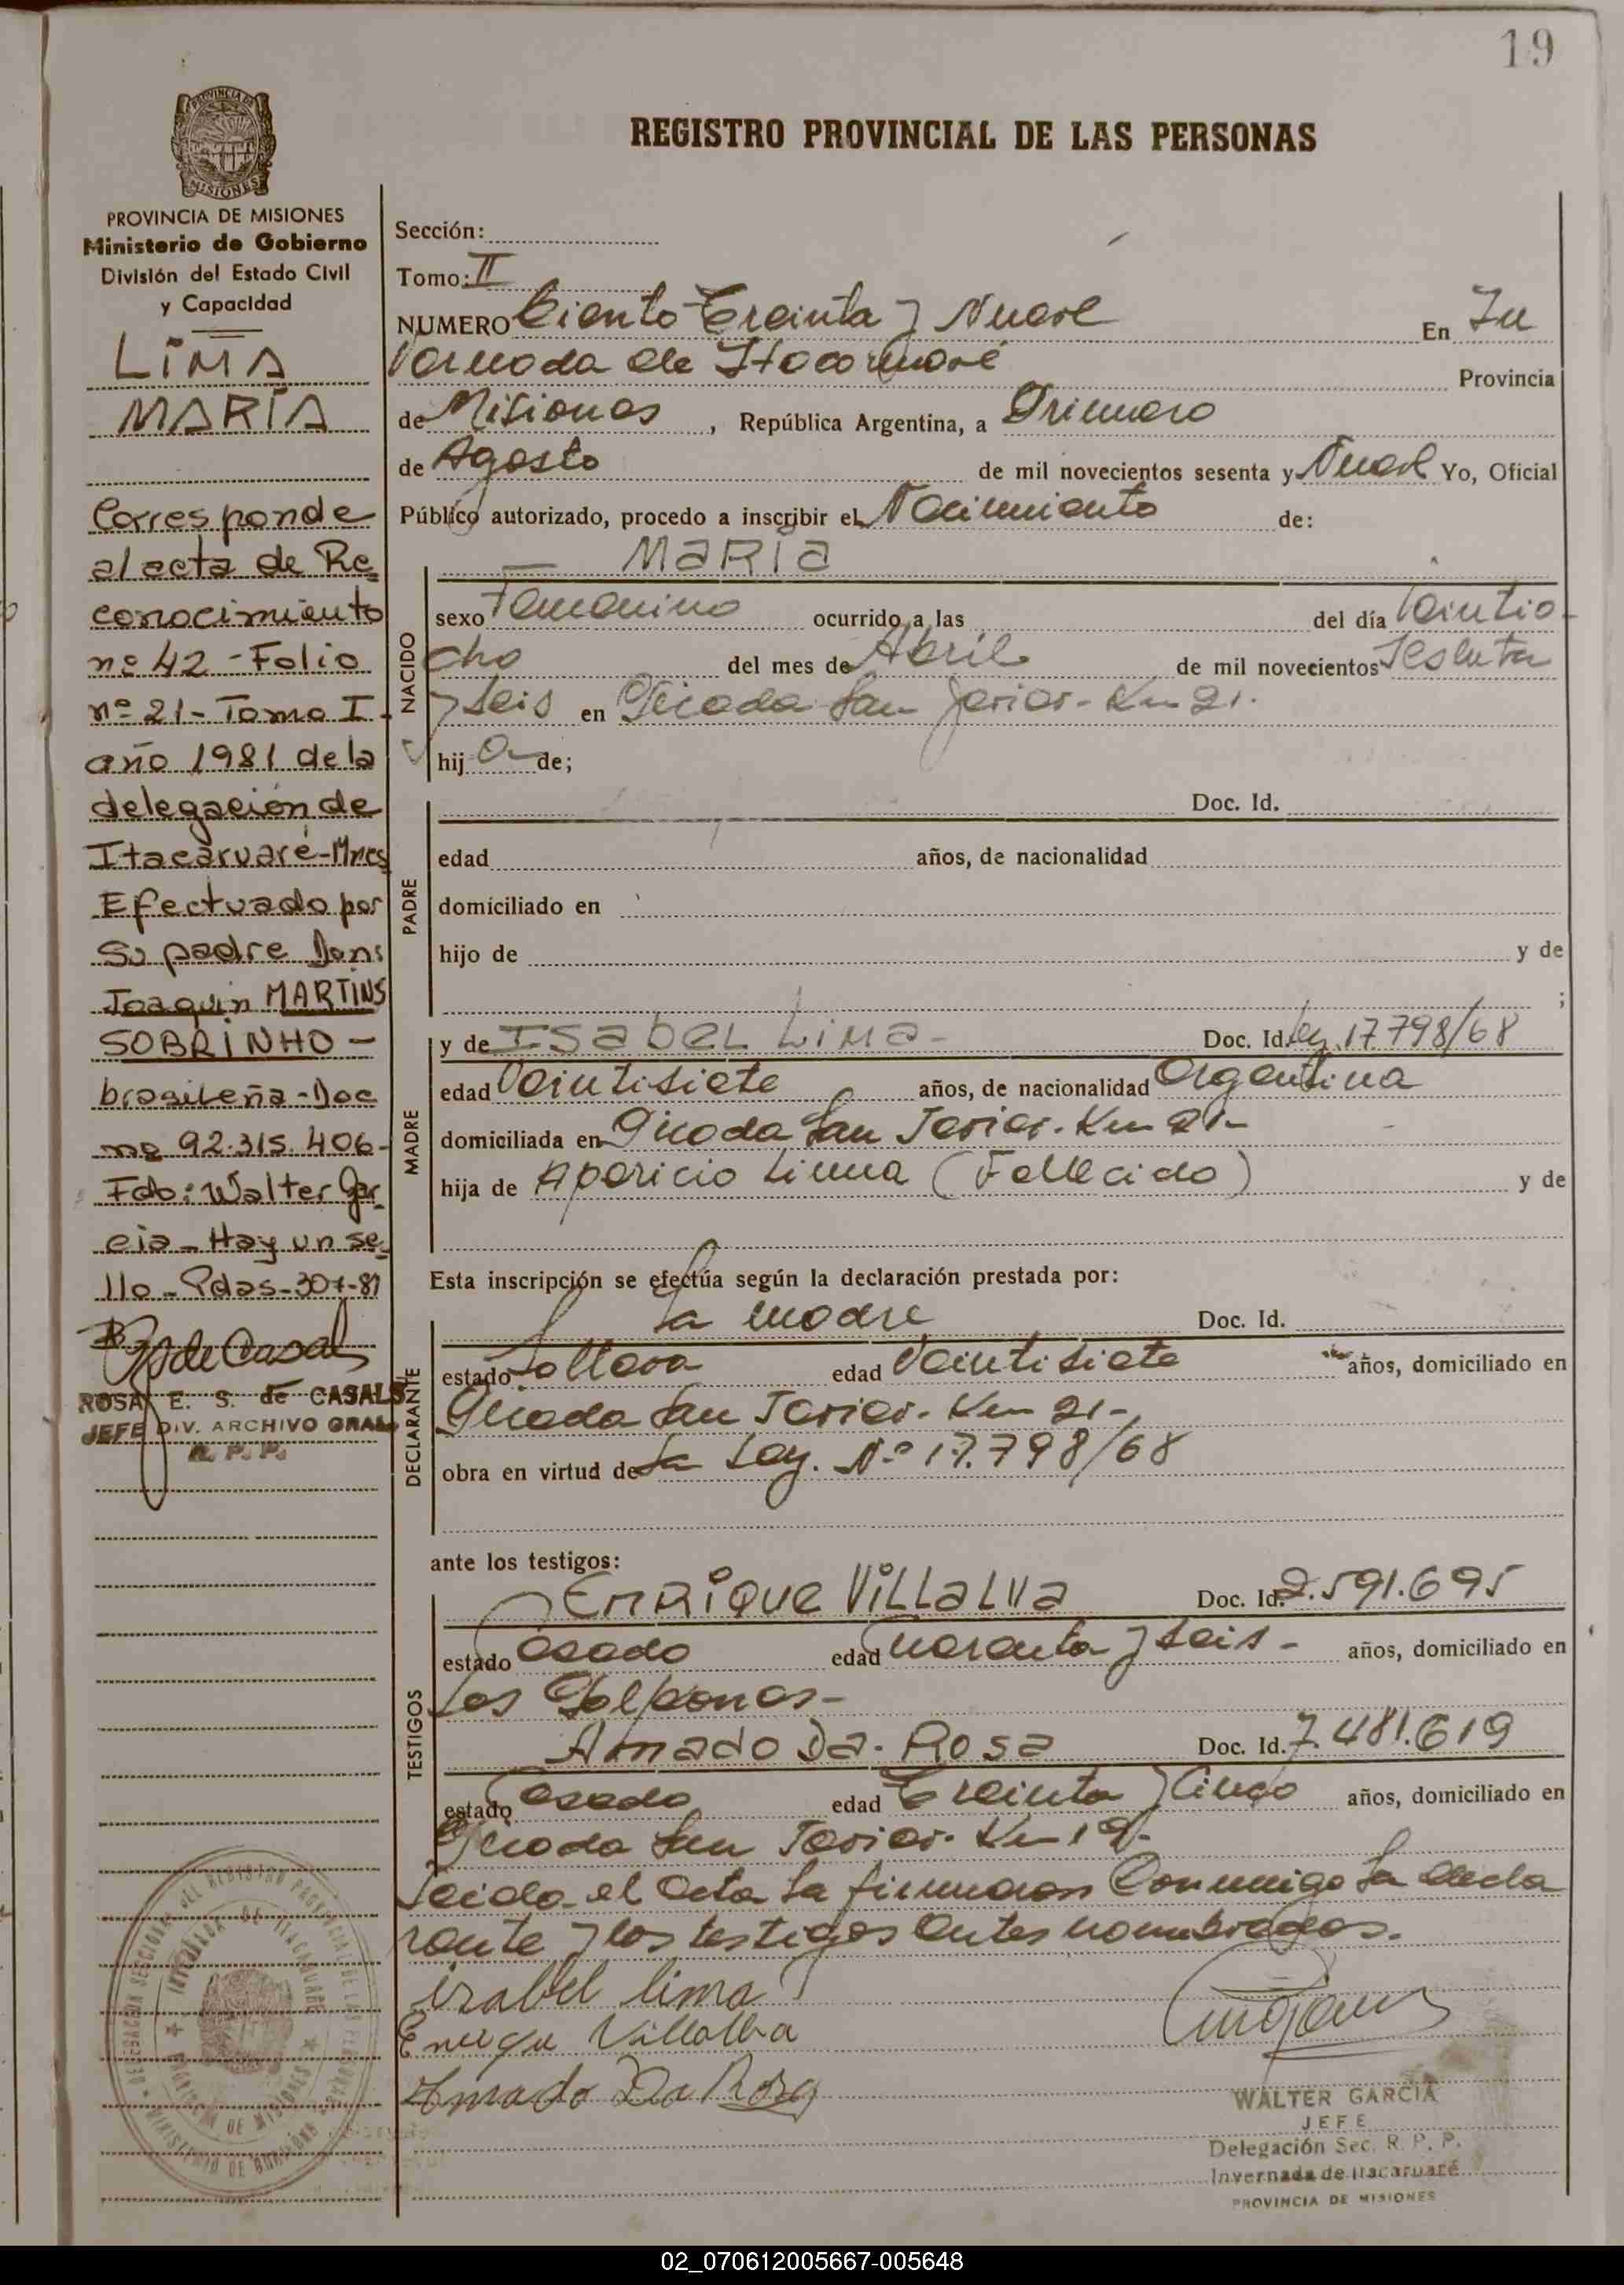 19
REGISTRO PROVINCIAL DE LAS PERSONAS
PROVINCIA DE MISIONES
PROVINCIA DE MISIONES
Ministerio de Gobierno
División del Estado Civil
y Capacidad
LIMA
MARÍA
Corresponde
al acta de Re
conocimiento
nº 42 - Folio
nº 21 - Tomo I
año 1981 de la
delegación de
Itacaruaré - Mnes
Efectuado por
su padre Don:
Joaquin MARTINS
SOBRINHO -
brasileña - Doc
nº 92.315.406 -
Fdo: Walter Gar
cia - Hay un se
llo - Pdas - 30-7-81
ROSA E. S. de CASALS
JEFE DIV. ARCHIVO GRAL
R. P. P.
Sección:
Tomo: II
NUMERO Ciento Treinta y Nueve En In
vernada de Itacaruaré Provincia
de Misiones, República Argentina, a Primero
de Agosto de mil novecientos sesenta y Nueve Yo, Oficial
Público autorizado, procedo a inscribir el Nacimiento de:
NACIDO
MARIA
sexo Femenino ocurrido a las del día Veintio
cho del mes de Abril de mil novecientos Sesenta
y Seis en Picada San Javier - Km 21.
hij a de;
PADRE
Doc. Id.
edad años, de nacionalidad
domiciliado en
hijo de y de
;
MADRE
y de ISABEL LIMA - Doc. Id. Ley. 17.798/68
edad Veintisiete años, de nacionalidad Argentina
domiciliada en Picada San Javier - Km 21 -
hija de Aparicio Lima (Fallecido) y de
Esta inscripción se efectúa según la declaración prestada por:
DECLARANTE
La madre Doc. Id.
estado Soltera edad Veintisiete años, domiciliado en
Picada San Javier - Km 21 -
obra en virtud de La Ley. Nº 17.798/68
ante los testigos:
TESTIGOS
ENRIQUE VILLALVA Doc. Id. 2.591.695
estado Casado edad Cuarenta y Seis - años, domiciliado en
Los Galpones -
Amado Da. Rosa Doc. Id. 7.481.619
estado Casado edad Treinta y Cinco años, domiciliado en
Picada San Javier - Km 19 -
Leida el Acta La firmaron Conmigo La decla
rante y los testigos Antes nombrados.
izabel lima
Enrique Villalba
Amado Da Rosa
WALTER GARCIA
JEFE
Delegación Sec. R. P. P.
Invernada de Itacaruaré
PROVINCIA DE MISIONES
02_070612005667-005648